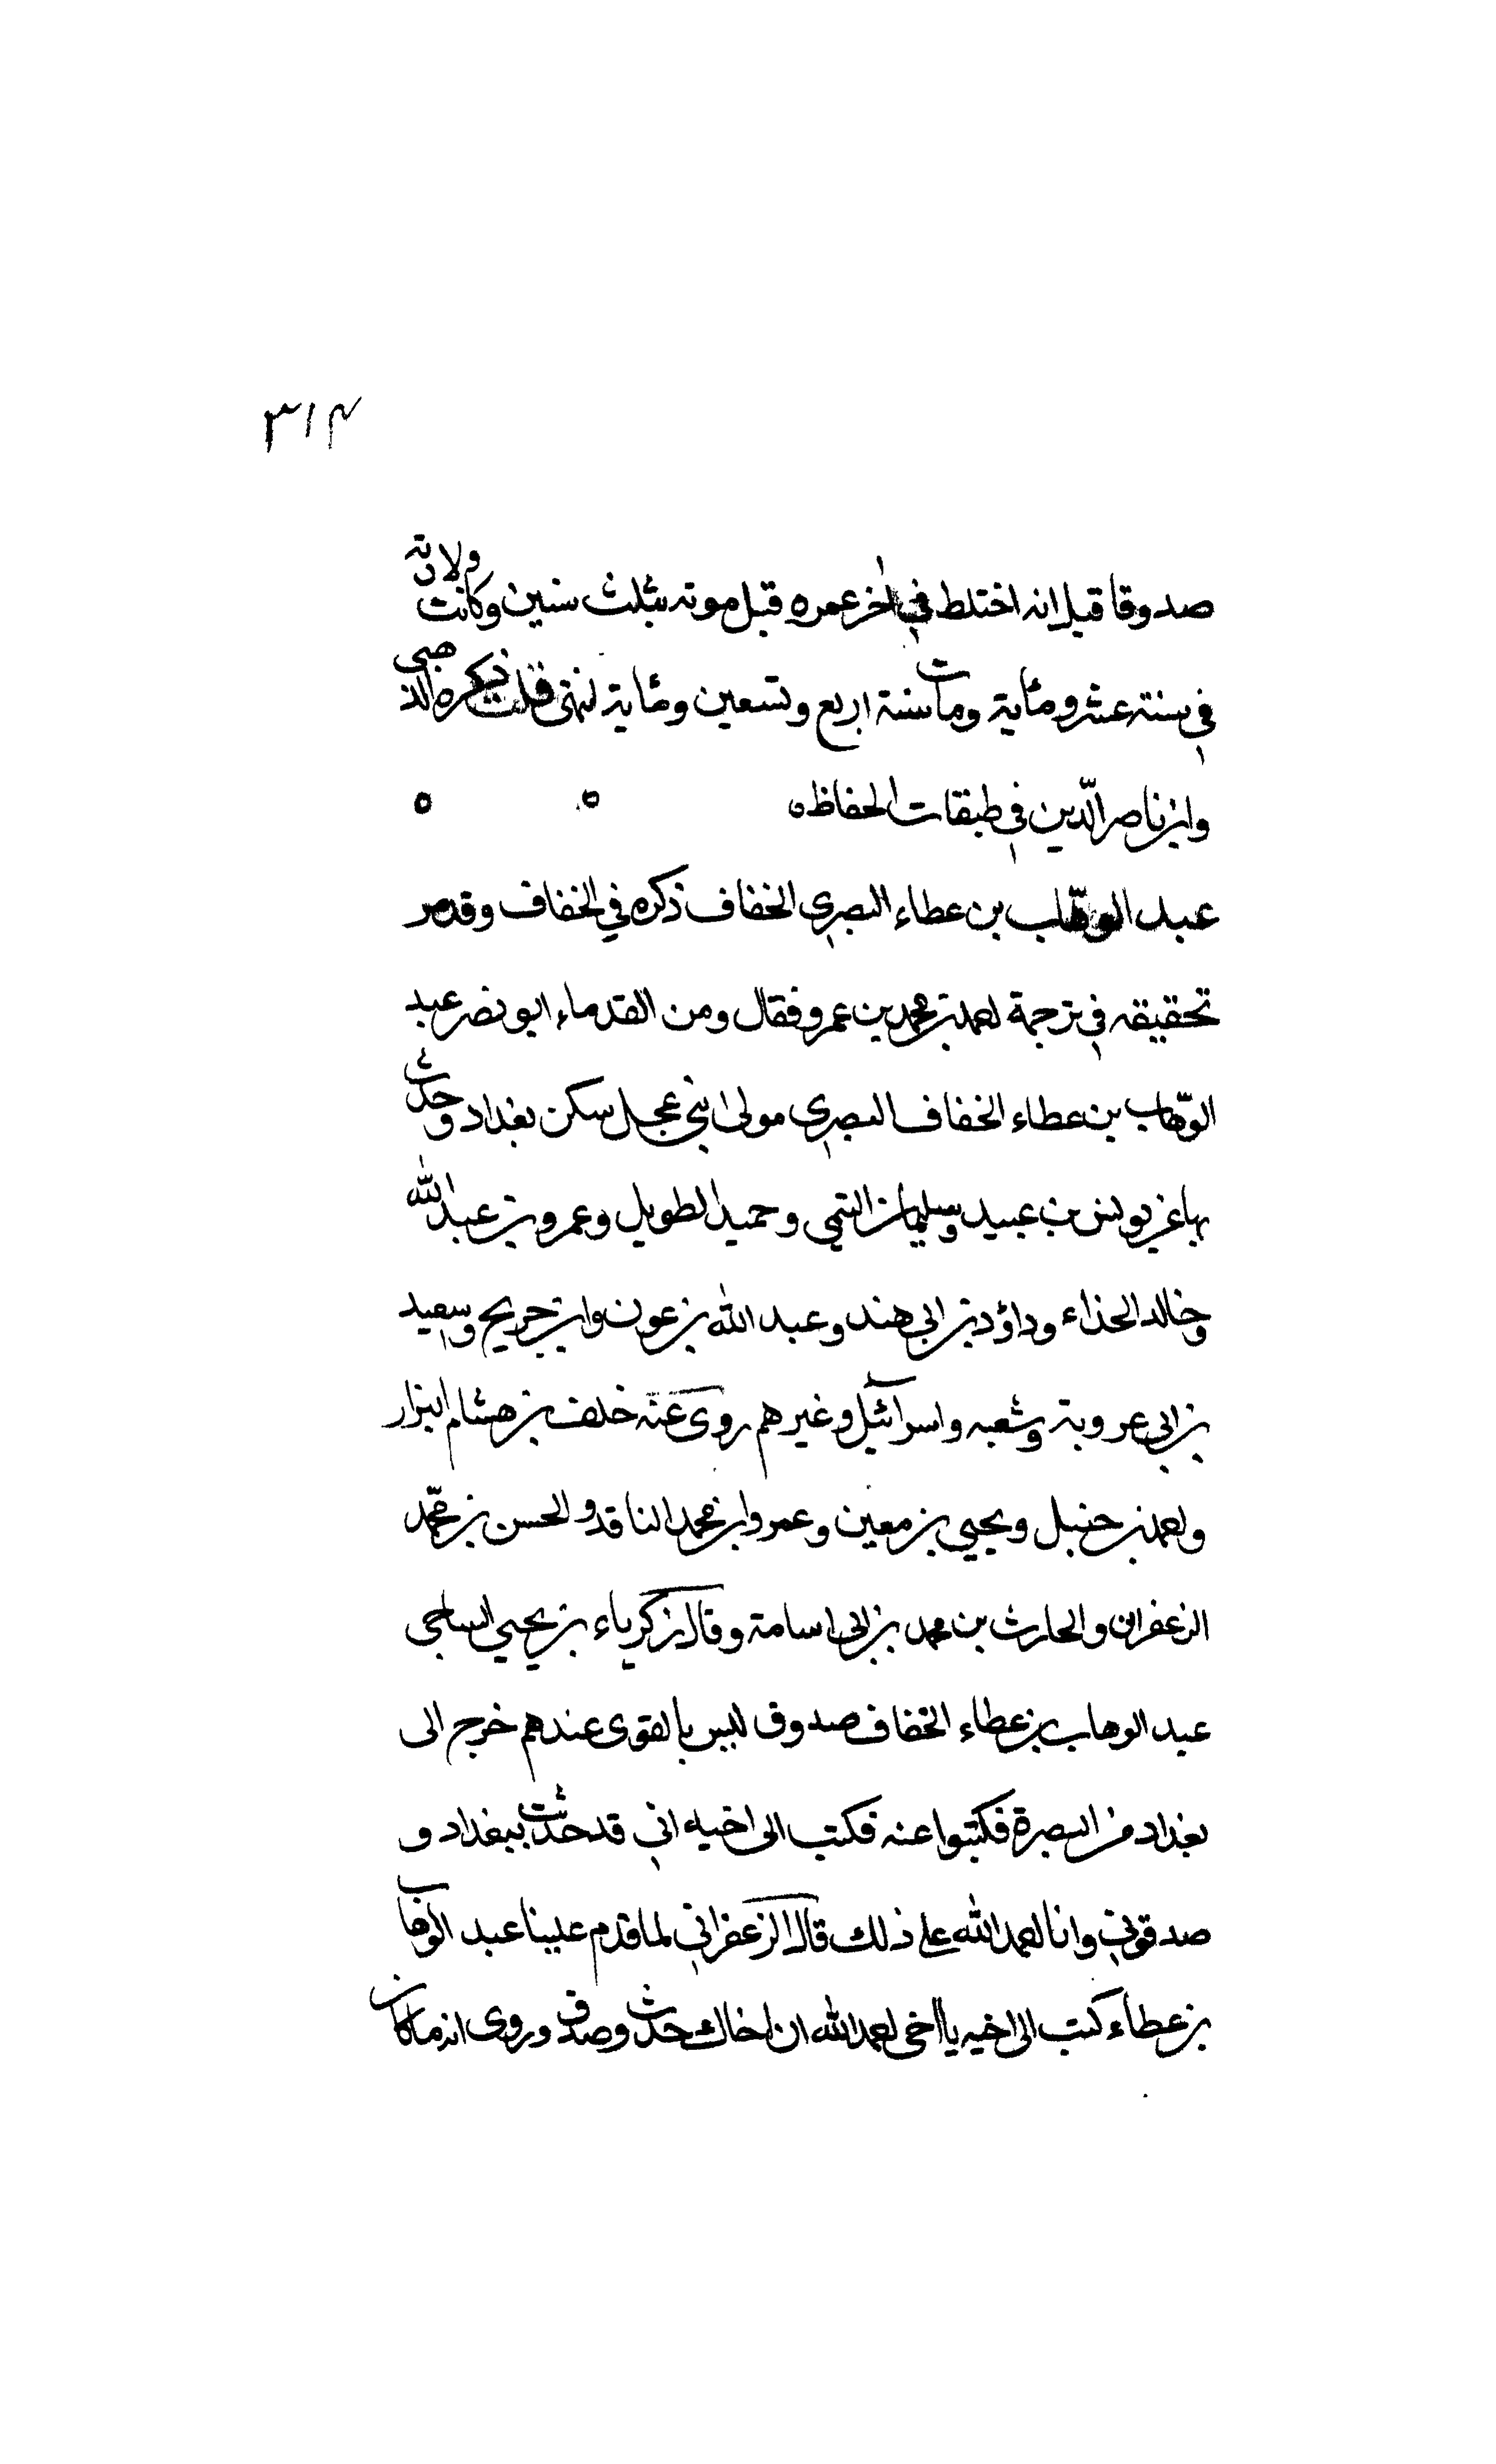 ٣١٤
صدوقا قيل انه اختلط في اخر عمره قبل موته بثلث سنين وكانت ولادته
في سنة عشر ومائة ومات سنة اربع وتسعين ومائة انتهى قلت ذكره الذهبى
وابن ناصر الدّين في طبقات الحفاظ ه ه ه
عبد الوهّاب بن عطاء البصري الخفاف ذكره في الخفاف وقد مر
تحقيقه في ترجمة احمد بن محمد بن عمرو فقال ومن القدماء ابو نصر عبد
الوهّاب بن عطاء الخفاف البصري مولى بني عجل سكن بغداد وحدث
بها عن يونس بن عبيد وسليمان التيمى وحميد الطويل وعمرو بن عبد الله
وخالد الحذاء وداؤد بن ابي هند وعبد الله بن عون وابن جريج وسعيد
بن ابي عروبة وشعبه واسرآئيل وغيرهم روى عنه خلف بن هشام البزار
واحمد بن حنبل ويحيي بن معين وعمرو ابن محمد الناقد والحسن بن محمّد
الزعفراني والحارث بن محمد بن ابي اسامة وقال زكرياء بن يحيي الساجي
عبد الوهاب بن عطاء الخفاف صدوق ليس بالقوى عندهم خرج الى
بغداد من البصرة فكتبوا عنه فكتب الى اخيه اني قد حدثت ببغداد و
صدقوني وانا احمد الله على ذلك قال الزعفراني لما قدم علينا عبد الوهاب
بن عطاء كتب الى اخيه يا اخى احمد الله ان اخاك حدث وصدق وروى انه ما كان